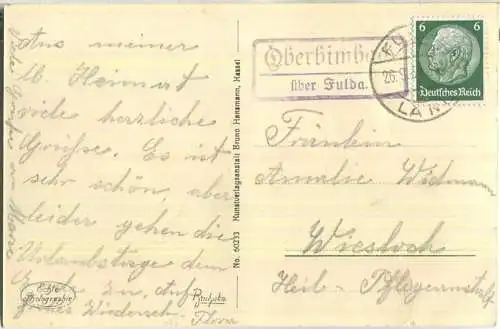 Aus meiner
lb. Heimat
viele herzliche
Grüße. Es ist
sehr schön, aber
leider gehen die
Urlaubstage dem
Ende zu. Auf
Wiederseh.
Viele Grüße an
Echte
Photographie
No. 60233 Kunstverlagsanstalt Bruno Hansmann, Kassel
Oberbimb
über Fulda.
FU
26.
LAN
6 6
Deutsches Reich
Fräulein
Amalie Widmann
Wiesloch
Heil- Pflegeanstalt